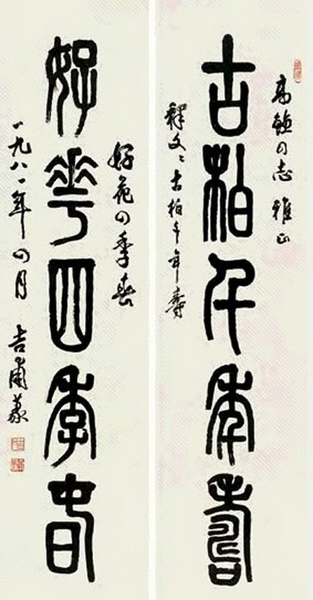 高同志雅正
古柏千年壽
釋文：古柏千年壽
好花四季春
好華四季春
一九八一年四月 吉甫篆